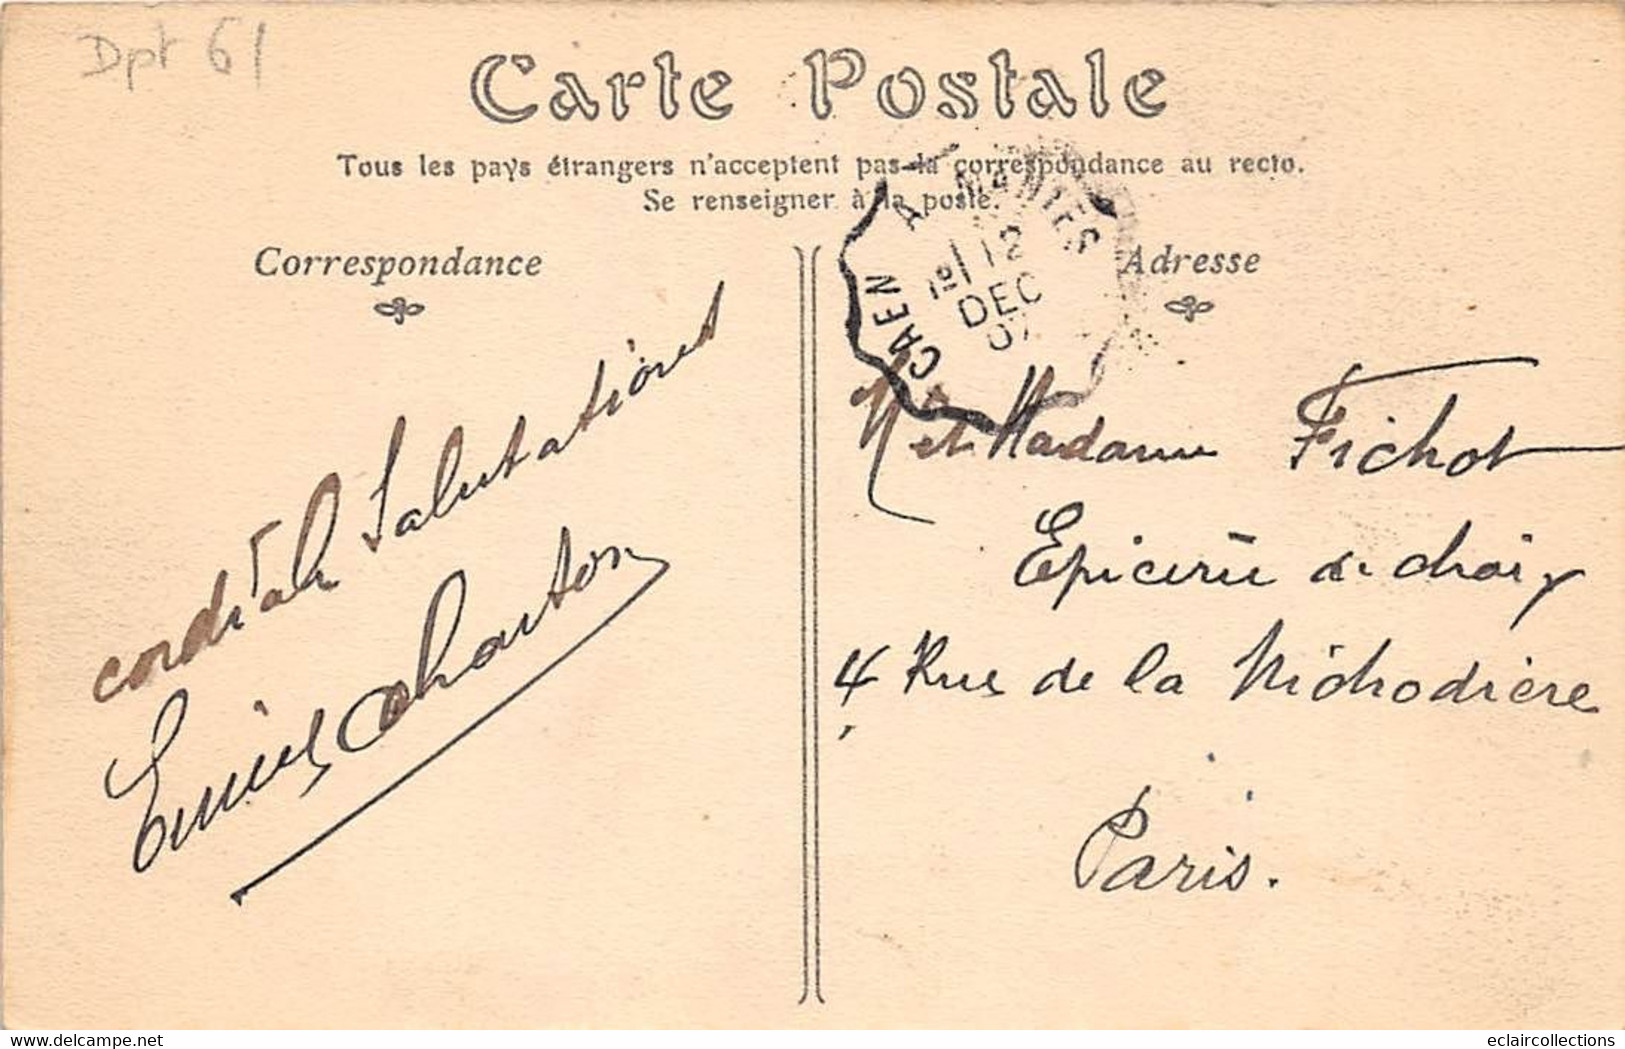 Dpt 61
Carte Postale
Tous les pays étrangers n'acceptent pas la correspondance au recto.
Se renseigner à la poste.
Correspondance
Adresse
CAEN A MANTES
12
DEC
07
cordiale Salutations
Emile Charton
M et Madame Fichot
Epicerie de choix
4 Rue de la Michodière
Paris.
www.delcampe.net
eclaircollections